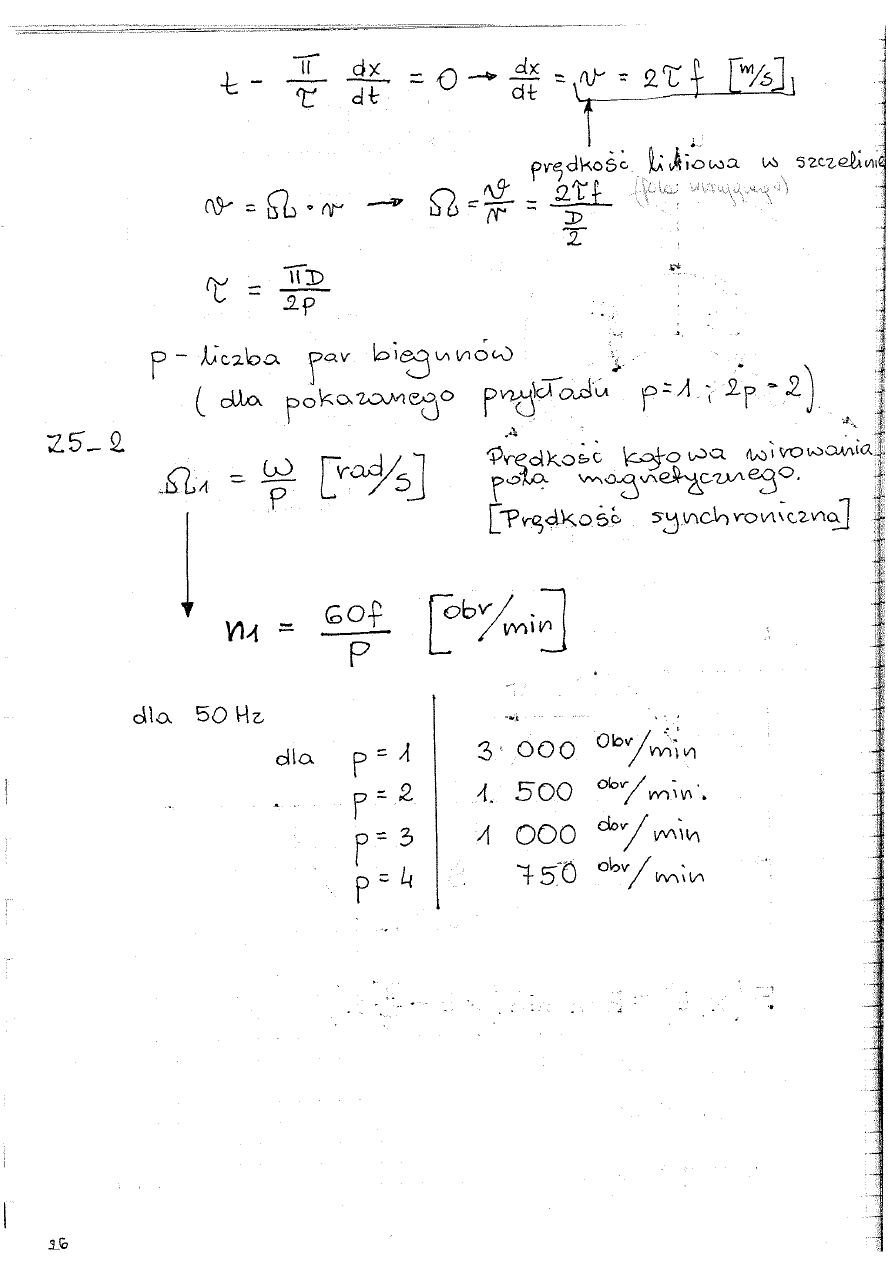 t - π/τ dx/dt = 0 → dx/dt = v = 2τf [m/s]
prędkość liniowa w szczelinie
v = Ω · r → Ω = v/r = 2τf / (D/2)
τ = πD / 2p
p - liczba par biegunów
( dla pokazanego przykładu p=1 ; 2p = 2)
Z5-2
Ω1 = ω/p [rad/s]
Prędkość kątowa wirowania
pola magnetycznego.
[Prędkość synchroniczna]
n1 = 60f / p [obr/min]
dla 50 Hz
dla p = 1 3 000 obr/min
p = 2 1 500 obr/min
p = 3 1 000 obr/min
p = 4 750 obr/min